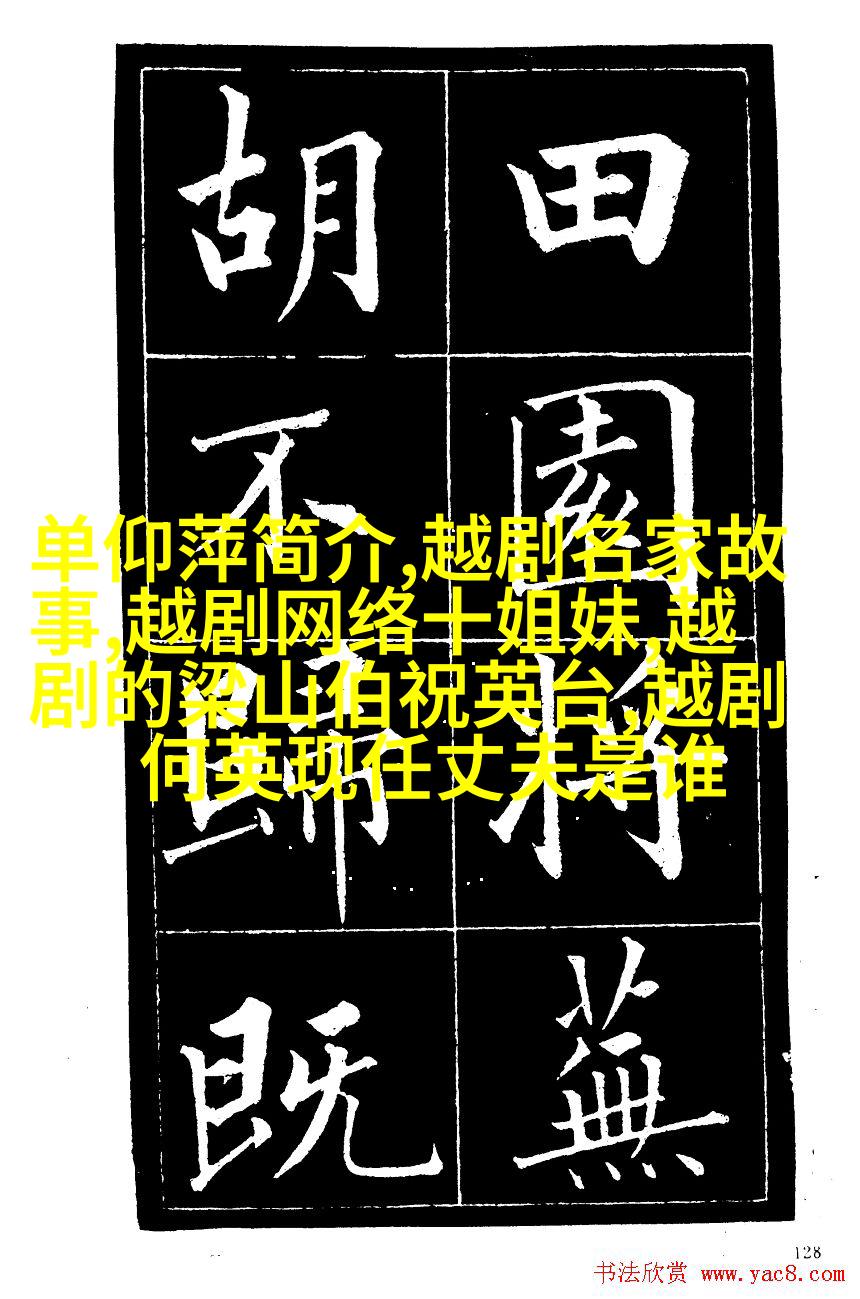 田園將蕪
胡不歸既
单仰萍简介,越剧名家故
事,越剧网络十姐妹,越
剧的梁山伯祝英台,越剧
何英现任丈夫是谁
128
书法欣赏 www.yac8.com